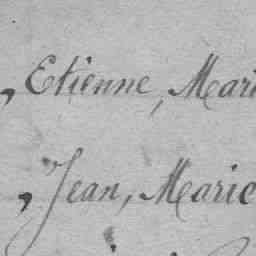 , Etienne, Mari
, Jean, Marie